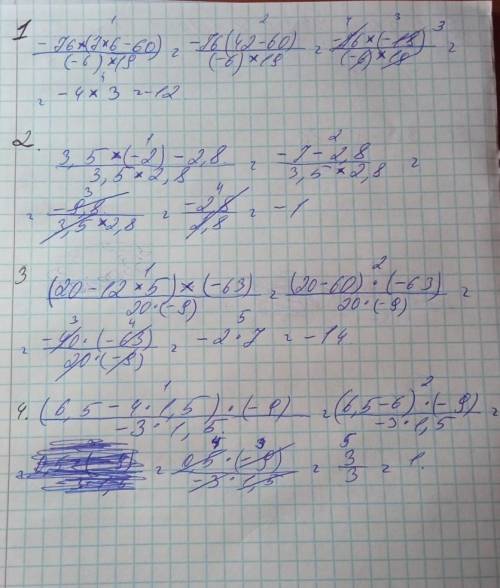 1 2 4 3 3
1 (-76×(7×6-60))/((-6)×19) = (-76(42-60))/((-6)×19) = (-76×(-18))/((-6)×19) =
= -4×3 = -12
2. (3,5×(-2)-2,8)/(3,5×2,8) = (-7-2,8)/(3,5×2,8) =
= (-9,8)/(3,5×2,8) = (-2,8)/(2,8) = -1
3 ((20-12×5)×(-63))/(20·(-9)) = ((20-60)·(-63))/(20·(-9)) =
= (-40·(-63))/(20·(-9)) = -2·7 = -14
4. ((6,5-4·1,5)·(-9))/(-3·1,5) = ((6,5-6)·(-9))/(-3·1,5) =
= (0,5·(-9))/(-3·1,5) = 3/3 = 1.